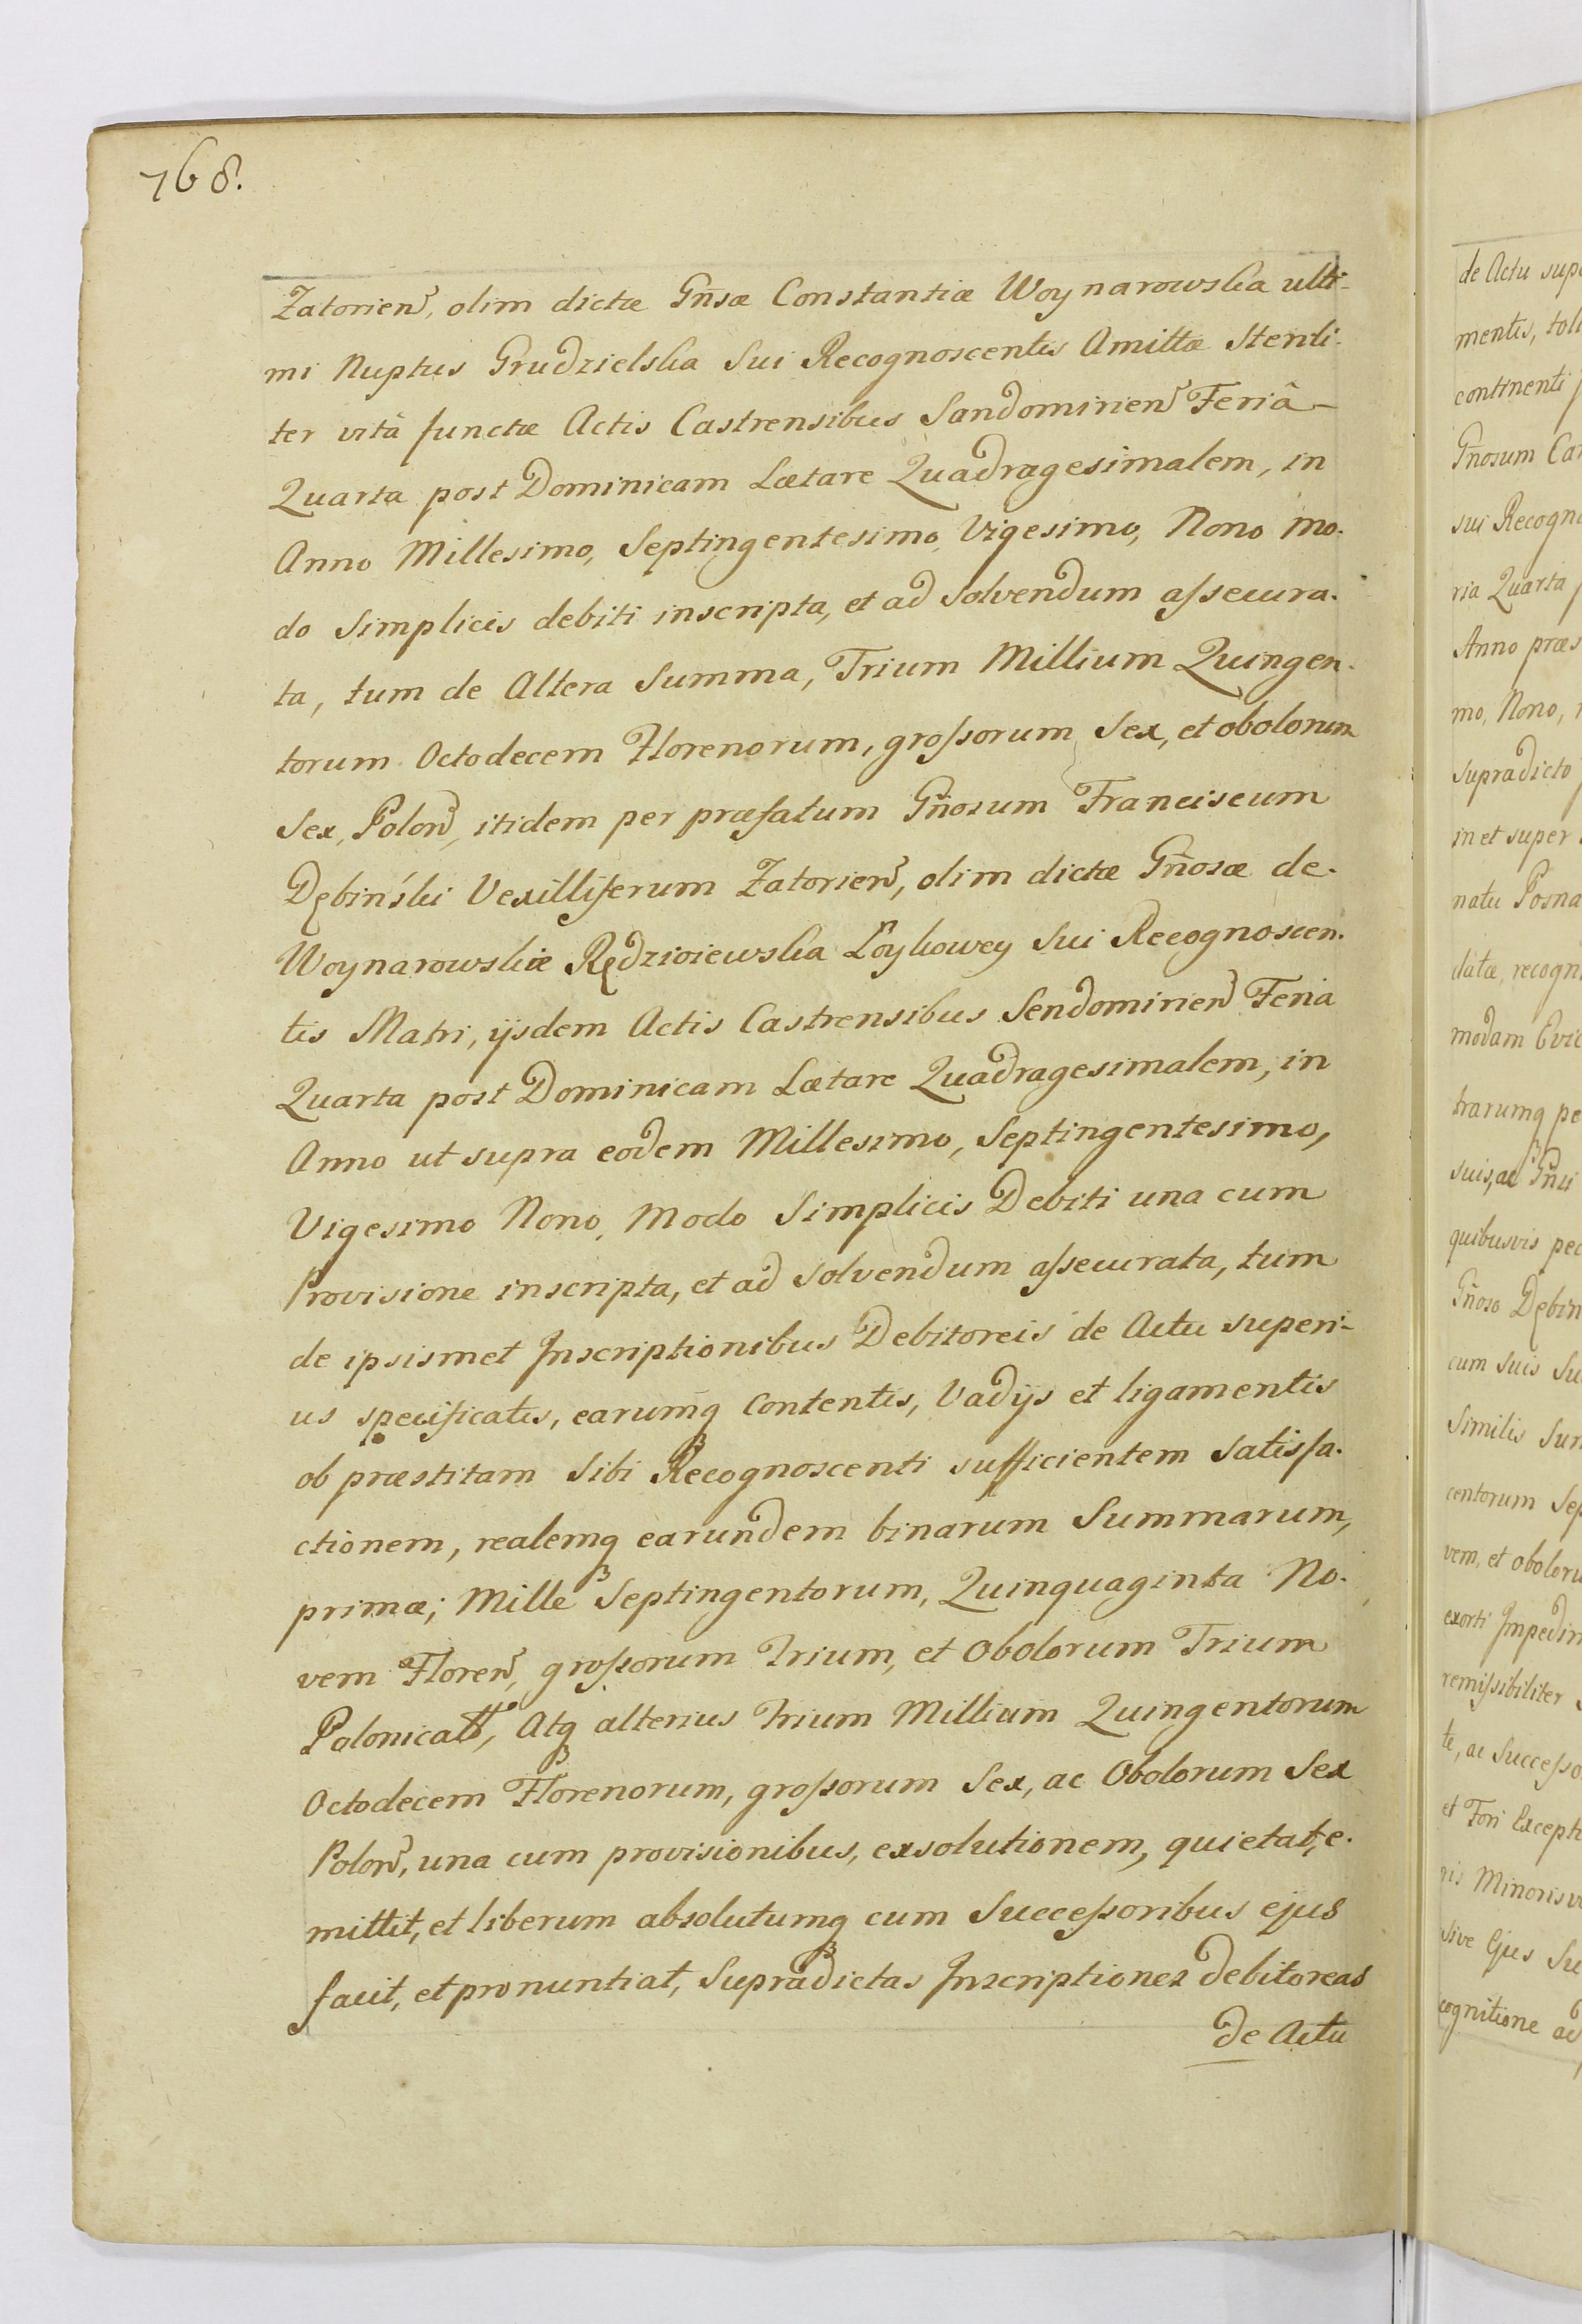 768.
Zatorien̄, olim dictæ Gn̄sæ Constantiæ Woynarowska ulti-
mi Nuptus Grudzielska Sui Recognoscentis Amittæ Sterili-
ter vitâ functæ Actis Castrensibus Sandomirien̄ Feriâ
Quarta post Dominicam Lætare Quadragesimalem, in
Anno Millesimo, Septingentesimo, Vigesimo, Nono mo-
do Simplicis debiti inscripta, et ad Solvendum assecura-
ta, tum de Altera Summa, Trium Millium Quingen-
torum Octodecem Florenorum, grossorum Sex, et obolorum
Sex, Polon̄, itidem per præfatum Gn̄osum Franciscum
Dębiński Vexilliferum Zatorien̄, olim dictæ Gn̄osæ de
Woynarowskiæ Rędzioiewska Łoykowey Sui Recognoscen-
tis Matri, ijsdem Actis Castrensibus Sendomirien̄ Feria
Quarta post Dominicam Lætare Quadragesimalem, in
Anno ut supra eodem Millesimo, Septingentesimo,
Vigesimo Nono, Modo Simplicis Debiti una cum
Provisione inscripta, et ad Solvendum assecurata, tum
de ipsismet Inscriptionibus Debitoreis de Actu superi-
us specificatis, earumq3 Contentis, Vadijs et ligamentis
ob præstitam Sibi Recognoscenti sufficientem Satisfa-
ctionem, realemq3 earundem binarum Summarum,
primæ; Mille Septingentorum, Quinquaginta No-
vem Floren̄, grossorum Trium, et Obolorum Trium
Polonical̄, Atq3 alterius Trium Millium Quingentorum
Octodecem Florenorum, grossorum Sex, ac Obolorum Sex
Polon̄, una cum provisionibus, exsolutionem, quietat, e-
mittit, et liberum absolutumq3 cum Successoribus ejus
facit, et pronuntiat, Supradictas Inscriptiones debitoreas
de Actu
de Actu
mentis,
continenti
Gn̄osum
sui
ria Quarta
Anno
mo, Nono,
supradicto
in et super
natu
datæ,
modam
trarumq
suis, ac
quibusvis
Gn̄oso
cum suis
Similis
centorum
vem, et
exorti
remissibiliter
te, ac
et Fori
sive Ejus
cognitione